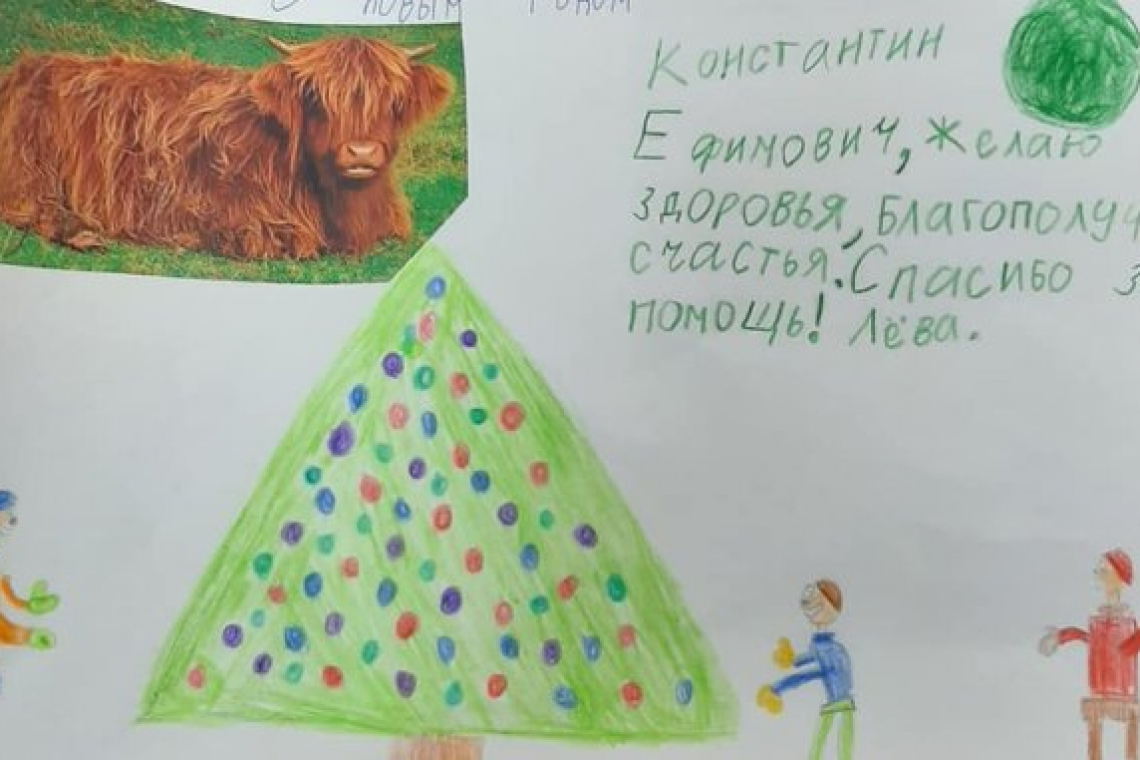 Новым Годом
Константин
Ефимович, желаю
здоровья, Благополуч
счастья. Спасибо з
помощь! Лёва.